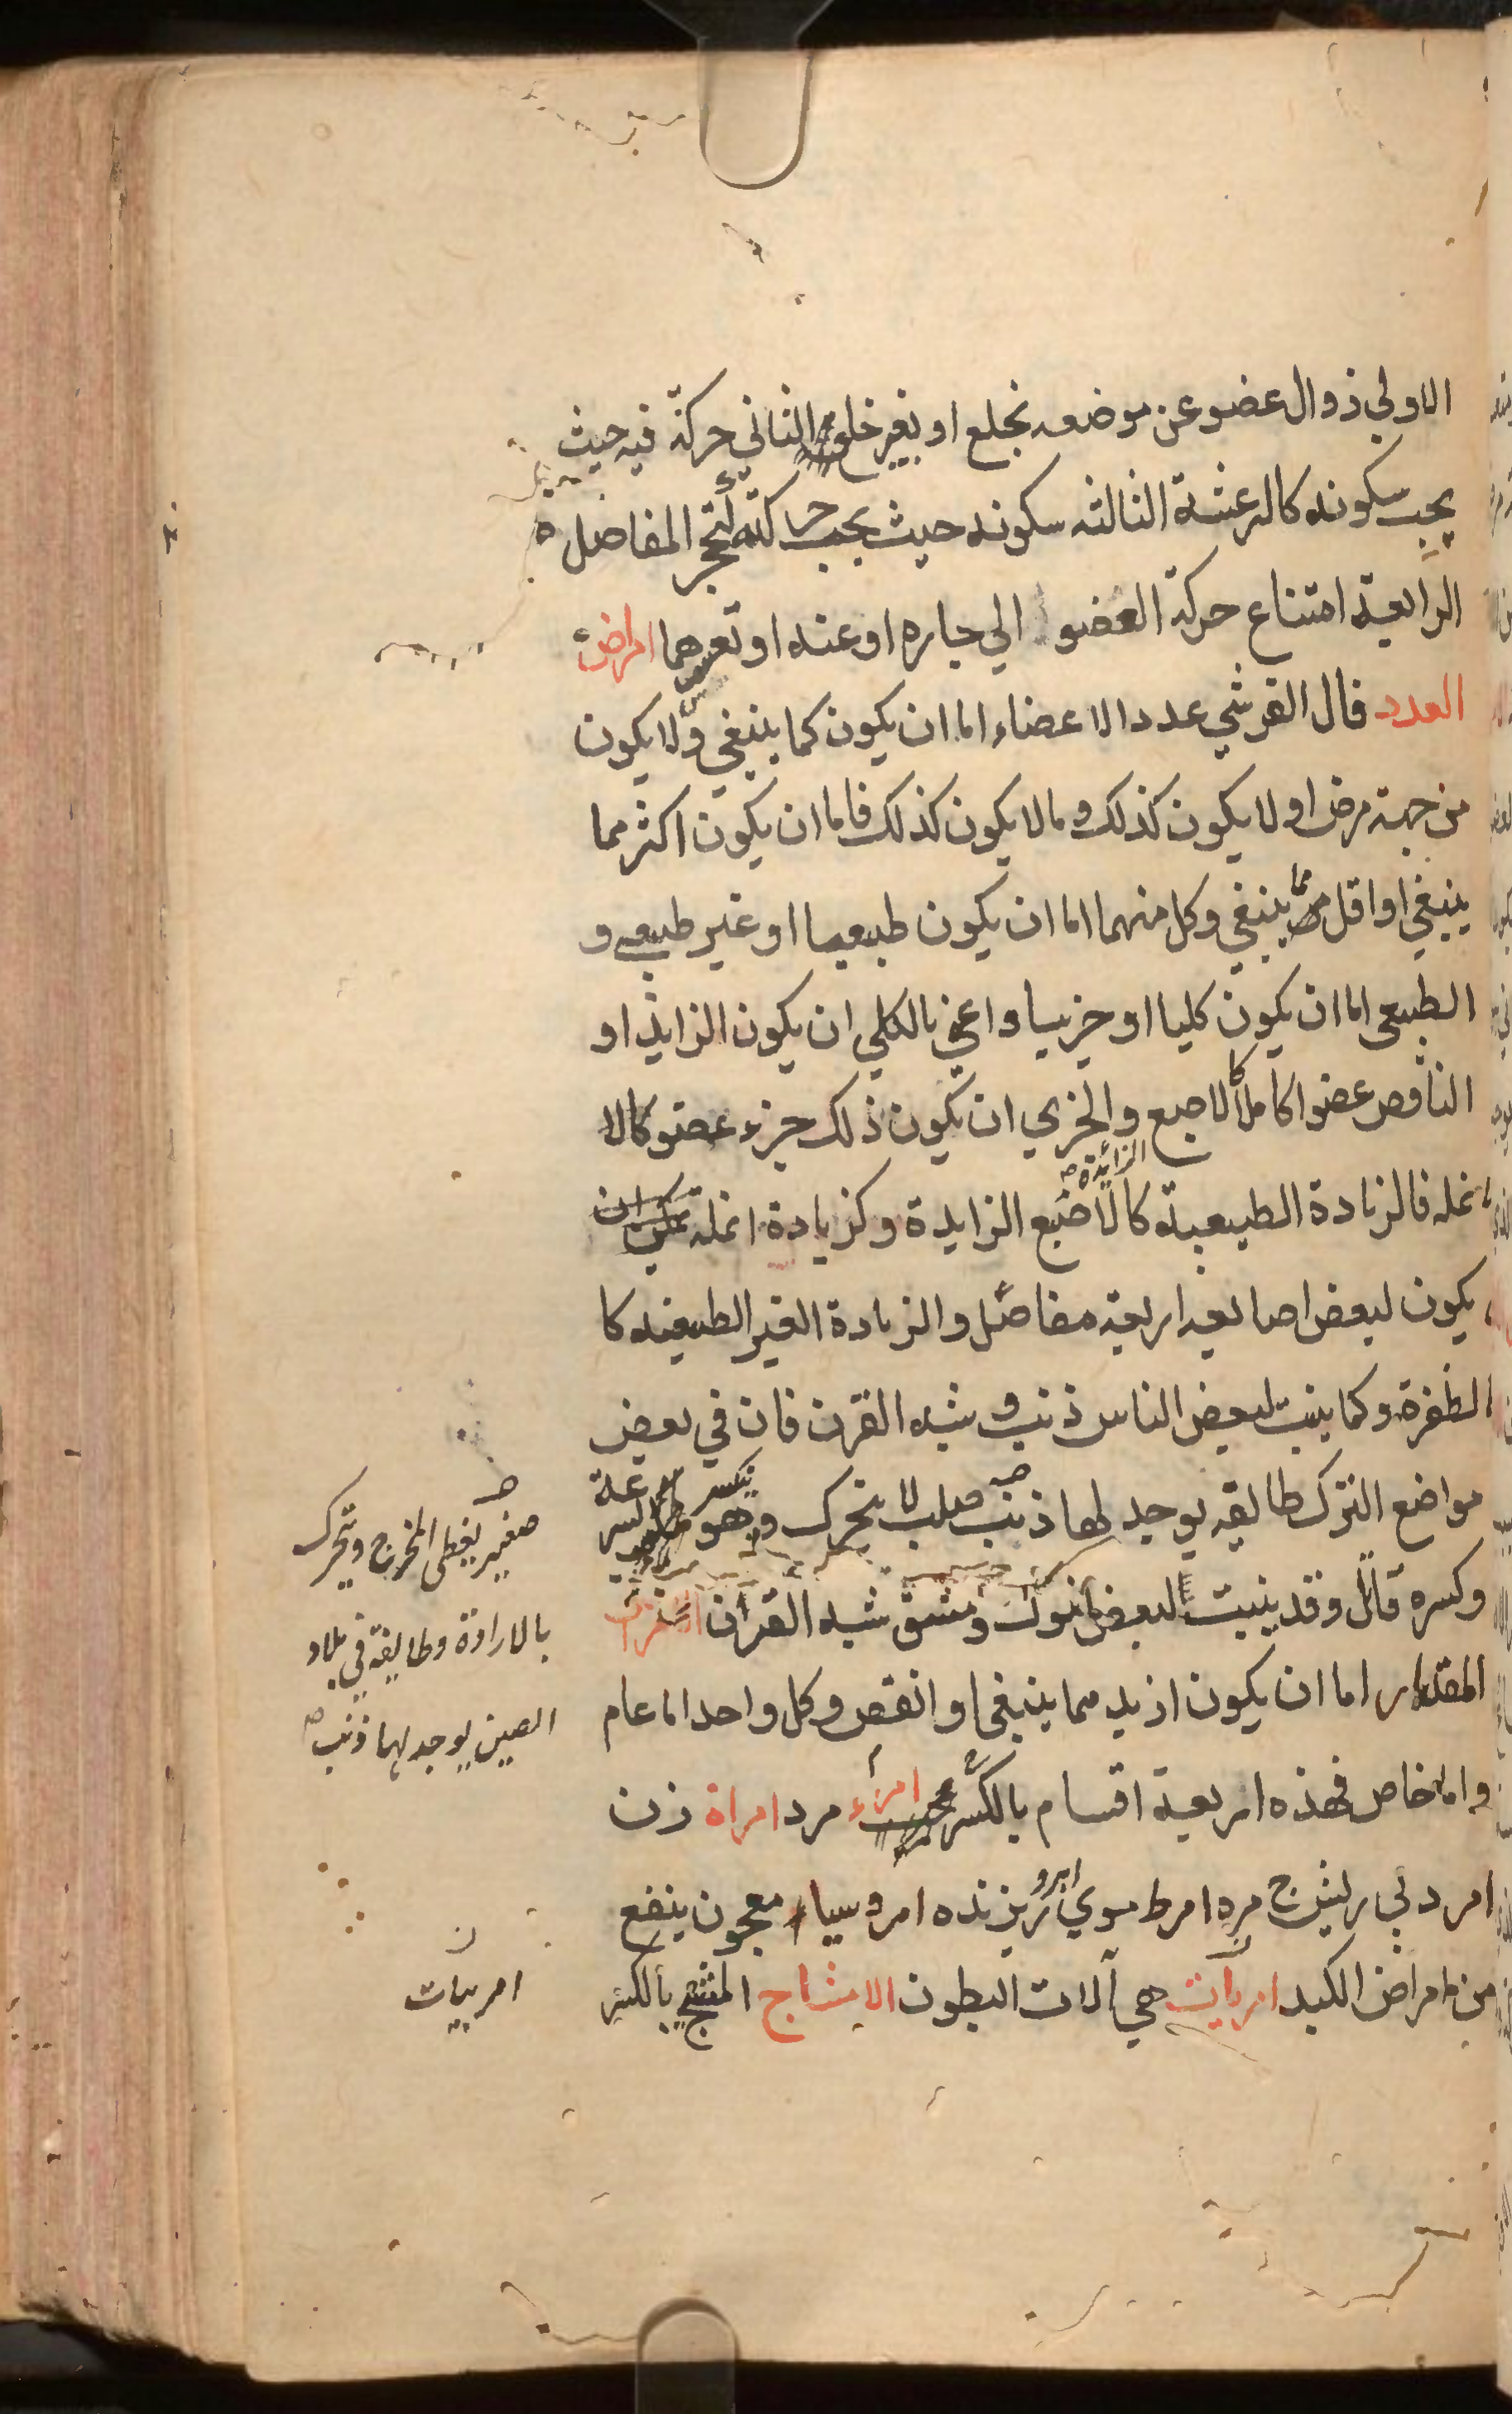 الاولي ذوال عضو عن موضعه بخلع او بغير خلع الثاني حركة فيه حيث
يجب سكونه كالرعشة الثالثه سكونه حيث يجب حركته كتحجر المفاصل
الرابعة امتناع حركة العضو الي جاره او عنه او تعسرهما امراض
العدد قال القرشي عدد الاعضاء اما ان يكون كما ينبغي ولا يكون
من جهة مرض او لا يكون كذلك وما لا يكون كذلك فاما ان يكون اكثر مما
ينبغي او اقل مما ينبغي وكل منهما اما ان يكون طبيعيا او غير طبيعي و
الطبيعي اما ان يكون كليا او جزييا واعني بالكلي ان يكون الزايد او
الناقص عضوا كاملا كالاصبع والجزي ان يكون ذلك جزء عضو كالا
الزائدة
نمله فالزيادة الطبيعية كالاصبع الزايدة وكزيادة انمله كمن
يكون لبعض اصابعه اربعة مفاصل والزيادة الغير الطبيعيه كا
الظفرة وكما ينبت لبعض الناس ذنب و شبه القرن فان في بعض
مواضع الترك طايفه يوجد لها ذنب صلب لا يتحرك وهو
وكسره قاتل وقد ينبت لبعض شبه القرن
المقدار اما ان يكون ازيد مما ينبغي او انقص وكل واحد اما عام
واما خاص فهذه اربعة اقسام بالكسر امرء مرد امراة زن
امرد بي ريش ج مره امرط موي ابرو ريزنده امروسياء معجون ينفع
من امراض الكبد امريات هي آلات البطون الامشاج المشج بالكسر
صغير يغطي المخرج ويتحرك
بالارادة وطايفة في بلاد
الصين يوجد لها ذنب
ن
امربيات